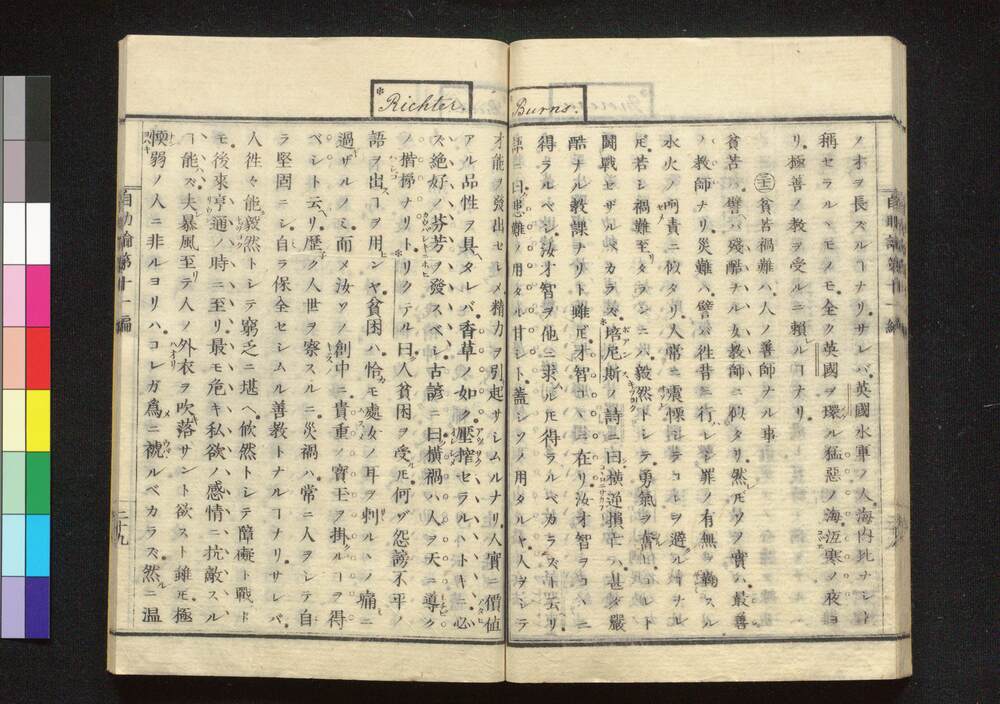 Burns.
ノ才ヲ長ズルヿナリ サレバ英國水軍ノ人海內比ナシト
稱セラルヽモノモ全ク英國ヲ環ル猛惡ノ海沍寒ノ夜ヨ
リ極善ノ教ヲ受ルニ賴ルヿナリ
貧苦禍難ハ人ノ善師ナル事
貧苦ハ譬ヘバ殘酷ナル女教師ニ似タリ然レ𪜈ソノ實ハ最善
ノ教師ナリ災難ハ譬ヘバ往昔ニ行レシ罪ノ有無ヲ
水火ノ呵責ニ似タリ人常ニ震慄シテコレヲ避ル
𪜈若シ禍難至ラシニハ毅然トシテ勇氣ヲ奮
鬪戰セザルベカラズ *培尼斯ノ詩ニ曰橫逆損亡ハ甚ダ嚴
酷ナル教課ナリト雖𪜈才智コヽニ在リ汝才智ヲコヽニ
得ラルベシ汝才智ヲ他ニ求ル𪜈得ラルベカラズト云リ
諺ニ曰患難ノ用タル甘シト蓋シソノ用タルヤ人ヲシテ
Richter.
才能ヲ發出セシメ精力ヲ引起サシムルナリ人實ニ價値
アル品性ヲ具ヘタレバ香草ノ如ク壓搾セラルヽトキハ必
ズ絕好ノ芬芳ヲ發スベシ古諺ニ曰橫禍ハ人ヲ天ニ導ク
ノ楷梯ナリト *リクテル曰人貧困ヲ受ル𪜈何ゾ怨謗不平ノ
語ヲ出スヿヲ用ンヤ貧困ハ恰モ處女ノ耳ヲ刺ルヽノ痛ニ
過ザルノミ而メ汝ソノ創中ニ貴重ノ寶玉ヲ掛クルヿヲ得
ベシト云リ歷ク人世ヲ察スルニ災禍ハ常ニ人ヲシテ自
ラ堅固ニシ自ラ保全セシムル善教トナルヿナリ サレバ
人徃々能毅然トシテ窮乏ニ堪ヘ欣然トシテ障礙ト戰ド
モ後來亨通ノ時ニ至リ最モ危キ私欲ノ感情ニ抗敵スル
ヿ能ズ夫暴風至リテ人ノ外衣ヲ吹落サント欲スト雖𪜈極
愞弱ノ人ニ非ルヨリハコレガ爲ニ褫ルベカラズ然ルニ溫
自助論第十一編
二十九